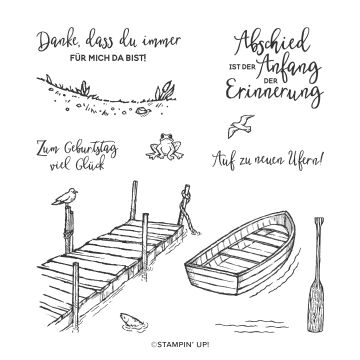 Danke, dass du immer
FÜR MICH DA BIST!
Abschied
IST DER Anfang
DER
Erinnerung
Zum Geburtstag
viel Glück
Auf zu neuen Ufern!
©STAMPIN' UP!